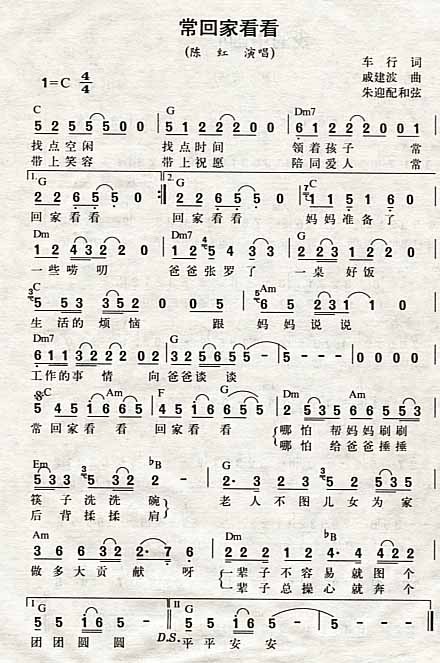 常回家看看
(陈 红 演唱)
车 行 词
1=C 4/4
戚建波 曲
朱迎配和弦
C G Dm7
5 2 5 5 5 0 0 5 1 2 2 2 0 0 6 1 2 2 2 0 0 1
找点空闲 找点时间 领着孩子 常
带上笑容 带上祝愿 陪同爱人 常
1. G 2. G C
2 2 6 5 5 0 :‖ 2 2 6 5 5 0 1 1 5 1 6 0
回家看看 回家看看 妈妈准备了
Dm Dm7 G
1 2 4 3 2 0 1 2 5 4 3 3 2 2 1 2 2 0
一些唠叨 爸爸张罗了 一桌好饭
C Am
5 5 3 3 5 2 0 0 6 5 2 3 1 1
生活的烦恼 跟妈妈说说
Dm7 G
6 1 1 3 2 2 2 0 2 1 6 5 5 6 5 - - 0 0 0 0
工作的事情 向爸爸谈谈
C Am F G Dm
5 4 5 1 6 6 5 5 4 5 1 6 6 5 2 5 3 5 6 6 5 5 3
常回家看看 回家看看 哪怕 帮妈妈刷刷
哪怕 给爸爸捶捶
Em bB G
5 3 3 5 3 2 2 - 5 1 2 2 5 3 5 1
筷子洗洗碗 老人不图儿女为家
后背揉揉肩
Am Dm
3 6 6 3 2 2· 7 6 2 2 2 1 2 4 2 5
做多大贡献呀 一辈子不容易就图个
一辈子总操心就奔个
1 G II G
5 1 2 1 1 D.S. 5 5 2 1 1 - - -
团团圆圆 平平安安